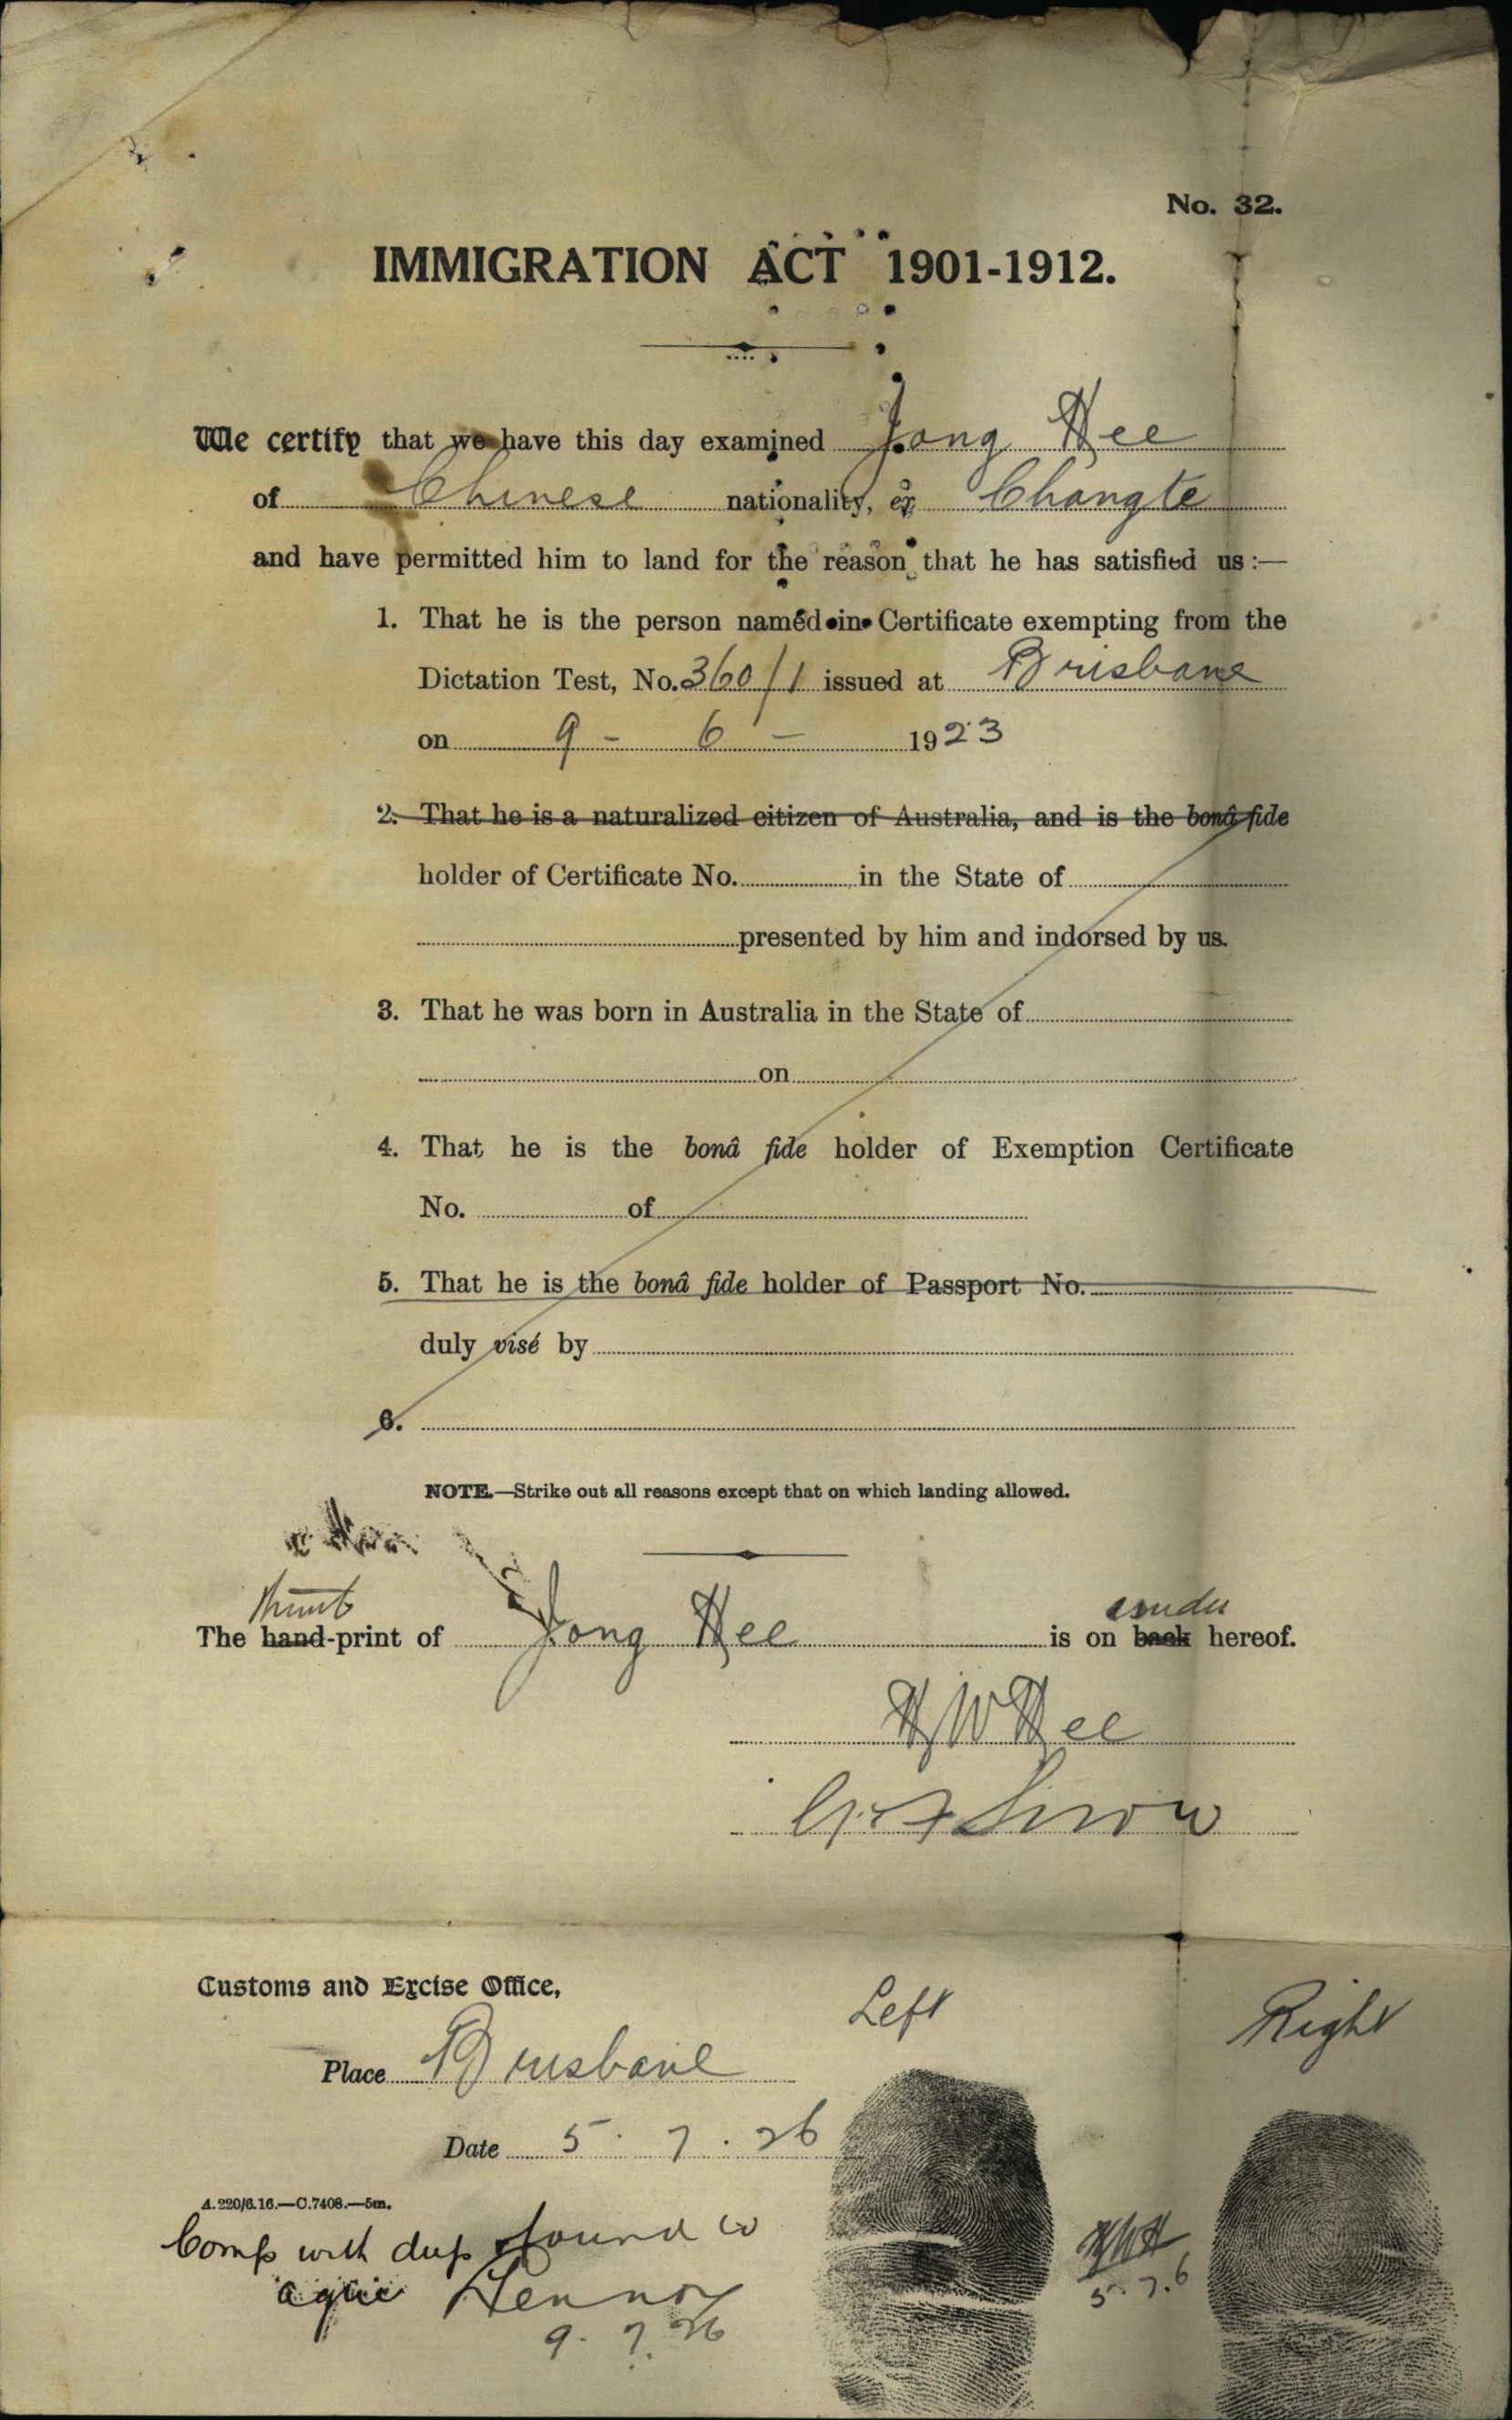 No. 32.
IMMIGRATION ACT 1901-1912.
We certify that we have this day examined Jong Hee
of Chinese nationality, ex Changte
and have permitted him to land for the reason that he has satisfied us:—
1. That he is the person named in Certificate exempting from the
Dictation Test, No. 360/1 issued at Brisbane
on 9 - 6 - 1923
2. That he is a naturalized citizen of Australia, and is the bonâ fide
holder of Certificate No. in the State of
presented by him and indorsed by us.
3. That he was born in Australia in the State of
on
4. That he is the bonâ fide holder of Exemption Certificate
No. of
5. That he is the bonâ fide holder of Passport No.
duly visé by
6.
NOTE.—Strike out all reasons except that on which landing allowed.
thumb
The hand-print of Jong Hee is on back hereof.
H W Hee
Customs and Excise Office,
Left
Right
Place Brisbane
Date 5 . 7 . 26
A.220/6.16.—C.7408.—5m.
Comp with dup found to
agree
5.7.6
9. 7. 26